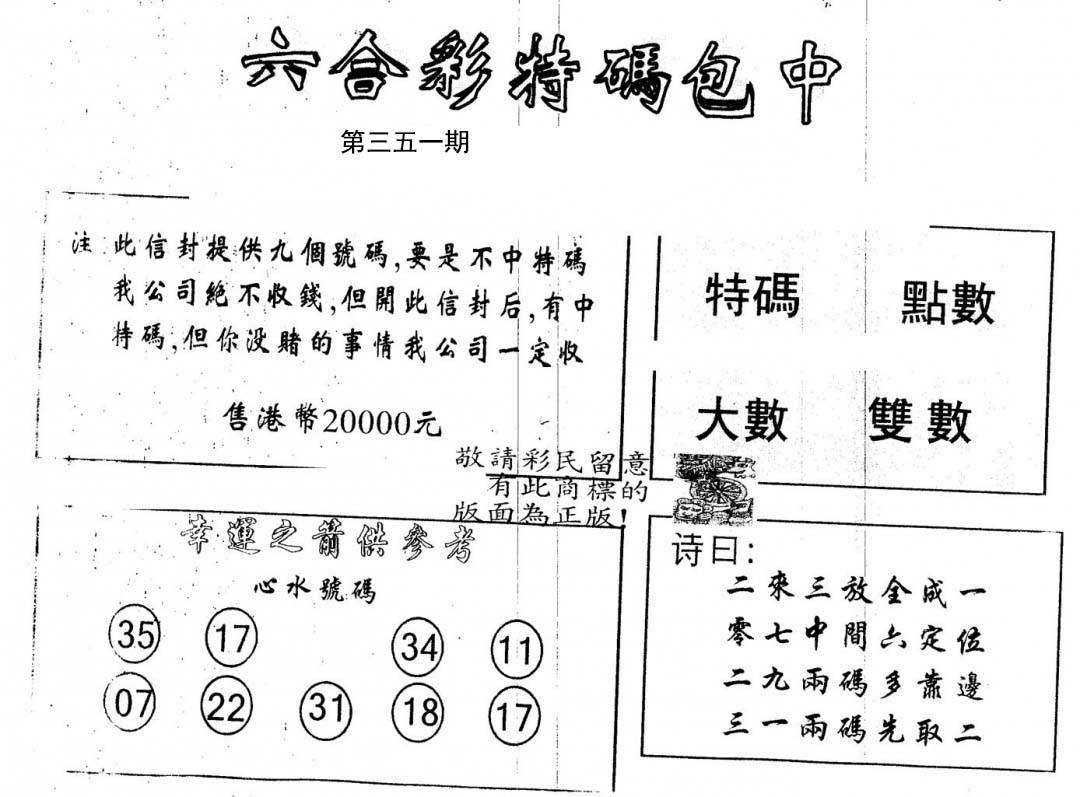 六合彩特碼包中
第三五一期
注 此信封提供九個號碼,要是不中特碼
我公司絕不收錢,但開此信封后,有中
特碼,但你没賭的事情我公司一定收
售港幣20000元
特碼 點數
大數 雙數
敬請彩民留意
有此商標的
版面為正版!
幸運之箭供參考
心水號碼
35 17 34 11
07 22 31 18 17
诗曰:
二來三放全成一
零七中間六定位
二九兩碼多靠邊
三一兩碼先取二